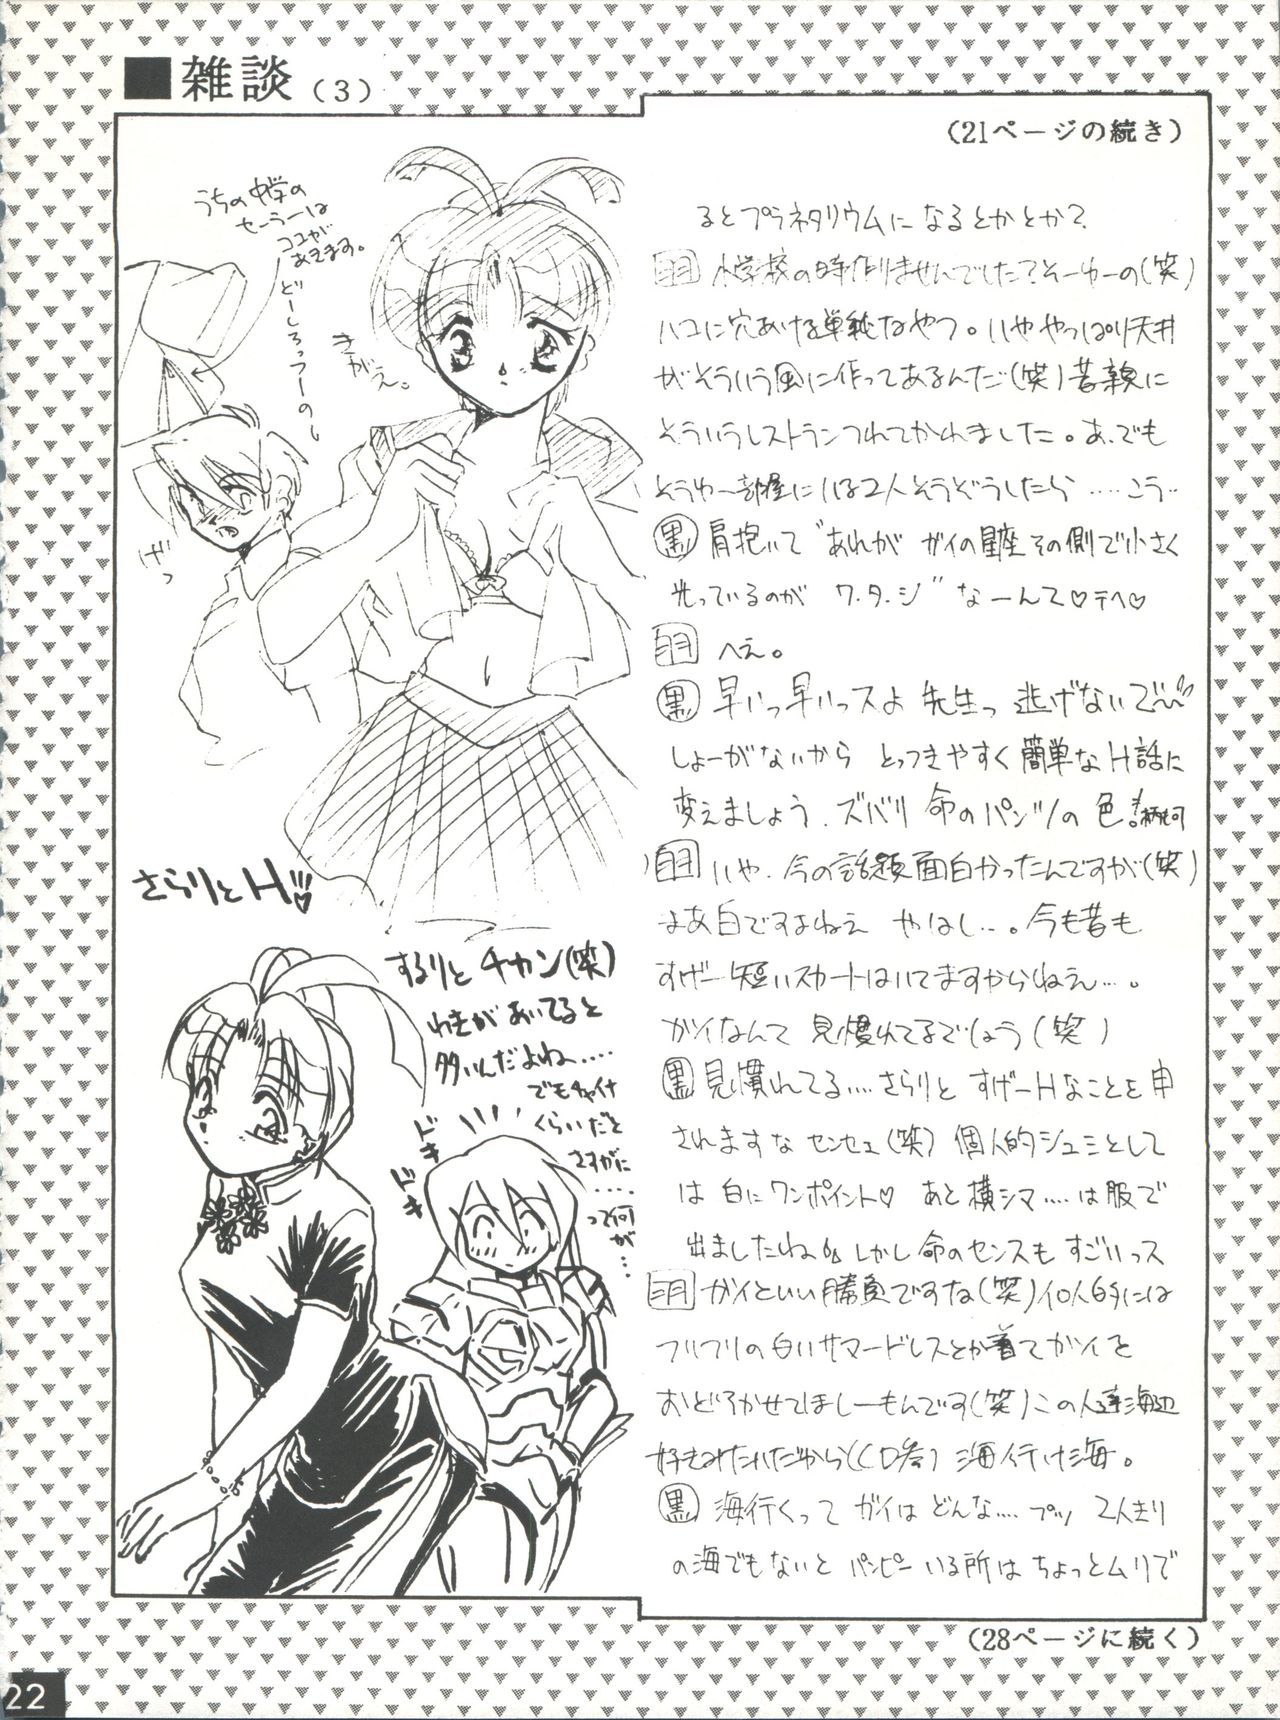 ■雑談（3）
（21ページの続き）
うちの中学の
セーラーは
ココが
あきます。
どーしろっつーの
きがえ。
さらりとH♡
するりとチカン(笑)
わきがあいてると
多いんだよね……
でもチャイナ
くらいだと
さすがに
……
って何
が…
ドキ
ドキ
るとプラネタリウムになるとかとか?
羽 小学校の時作りませんでした?そーゆーの(笑)
ハコに穴あける単純なやつ。いややっぱり天井
がそういう風に作ってあるんだ(笑)昔親に
そういうレストランつれてかれました。あ、でも
そうゆー部屋にいる2人そうぞうしたら……こう‥
黒 肩抱いて“あれがガイの星座その側で小さく
光っているのがワ・タ・シ”なーんて♡テヘ♡
羽 へえ。
黒 早いっ早いっスよ先生っ逃げないで〜
しょーがないからとっつきやすく簡単なH話に
変えましょう。ズバリ命のパンツの色!柄可
羽 いや、今の話題面白かったんですが(笑)
まあ白ですよねえ やはし…。今も昔も
すげー短いスカートはいてますからねえ…。
ガイなんて見慣れてるでしょう(笑)
黒 見慣れてる……さらりとすげーHなことを申
されますなセンセェ(笑)個人的シュミとして
は白にワンポイント♡ あと横シマ……は服で
出ましたね しかし命のセンスもすごいっス
羽 ガイといい勝負ですな(笑)個人的には
フリフリの白いサマードレスとか着てガイを
おどろかせてほしーもんです(笑)この人達海辺
好きみたいだから(CD参)海行け海。
黒 海行くってガイはどんな……プッ 2人きり
の海でもないとパンピーいる所はちょっとムリで
（28ページに続く）
22